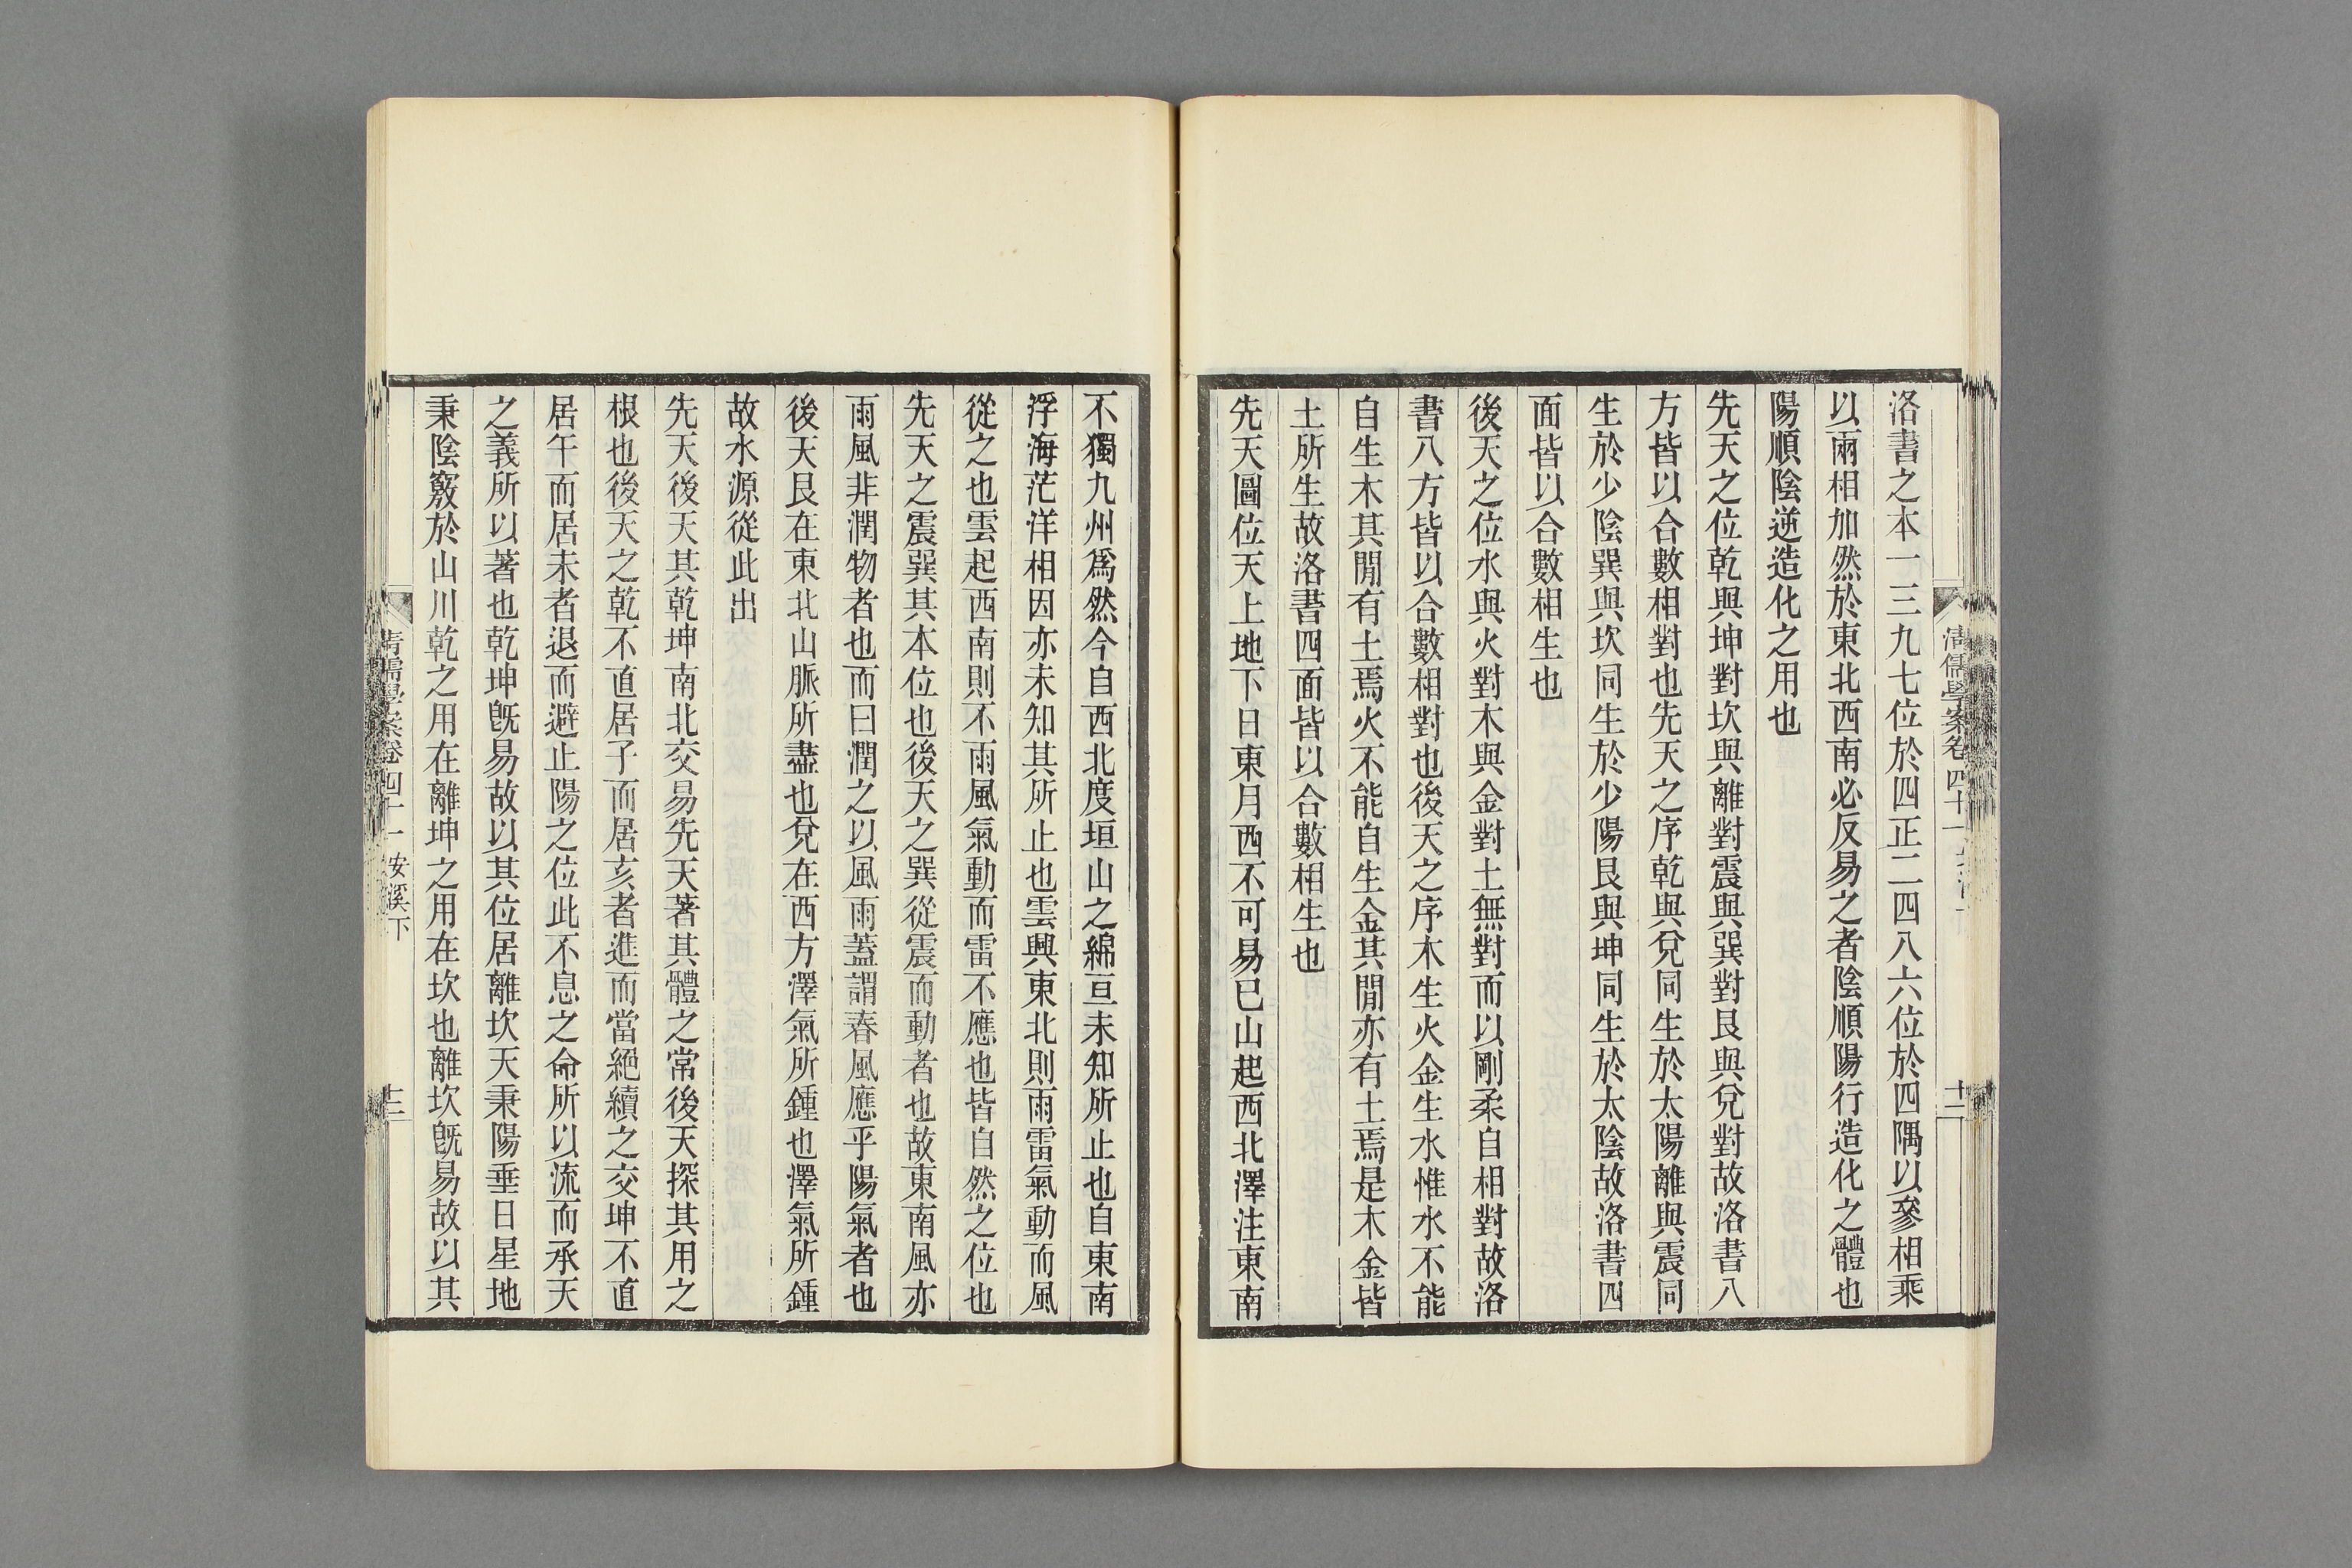 洛書之本一三九七位於四正二四八六位於四隅以參相乘
以兩相加然於東北西南必反易之者陰順陽行造化之體也
陽順陰逆造化之用也
先天之位乾與坤對坎與離對震與巽對艮與兌對故洛書八
方皆以合數相對也先天之序乾與兌同生於太陽離與震同
生於少陰巽與坎同生於少陽艮與坤同生於太陰故洛書四
面皆以合數相生也
後天之位水與火對木與金對土無對而以剛柔自相對故洛
書八方皆以合數相對也後天之序木生火金生水惟水不能
自生木其閒有土焉火不能自生金其閒亦有土焉是木金皆
土所生故洛書四面皆以合數相生也
先天圖位天上地下日東月西不可易已山起西北澤注東南
清儒學案卷四十一
十二
不獨九州爲然今自西北度垣山之綿亘未知所止也自東南
浮海茫洋相因亦未知其所止也雲興東北則雨雷氣動而風
從之也雲起西南則不雨風氣動而雷不應也皆自然之位也
先天之震巽其本位也後天之巽從震而動者也故東南風亦
雨風非潤物者也而曰潤之以風雨蓋謂春風應乎陽氣者也
後天艮在東北山脈所盡也兌在西方澤氣所鍾也澤氣所鍾
故水源從此出
先天後天其乾坤南北交易先天著其體之常後天探其用之
根也後天之乾不直居子而居亥者進而當絕續之交坤不直
居午而居未者退而避止陽之位此不息之命所以流而承天
之義所以著也乾坤旣易故以其位居離坎天秉陽垂日星地
秉陰竅於山川乾之用在離坤之用在坎也離坎旣易故以其
清儒學案卷四十一 安溪下
十二